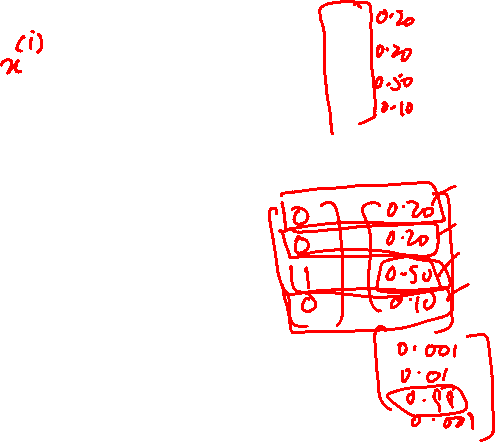 x^(i)
0.20
0.20
0.50
0.10
0 0.20
0 0.20
1 0.50
0 0.10
0.001
0.01
0.99
0.001